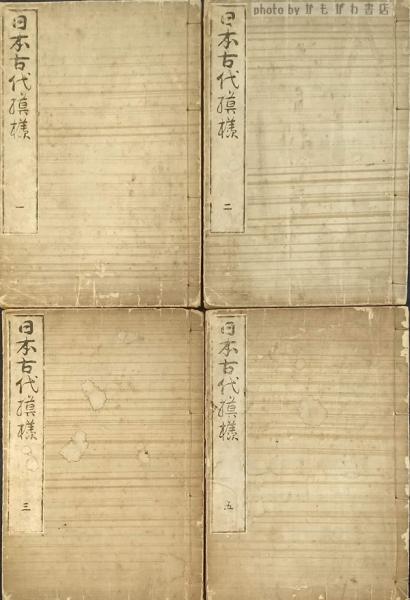 photo by かもがわ書店
日本古代摸様
一
日本古代摸様
二
日本古代摸様
三
日本古代摸様
五